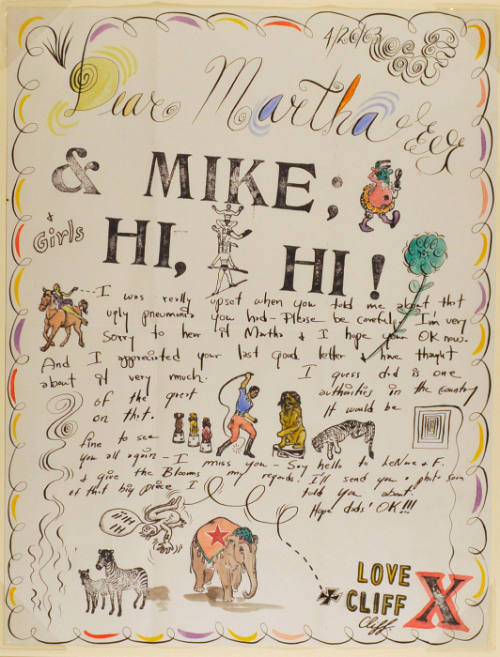 Dear Martha
& MIKE;
& Girls
HI, HI!
I was really upset when you told me about that
ugly pneumonia you had - Please be careful. I'm very
sorry to hear it Martha & I hope your OK now.
And I appreciated your last good letter & have thought
about it very much. I guess dad is one
of the great authorities in the country
on that. It would be
fine to see
you all again - I miss you - Say hello to & F.
& give the Blooms my regards. I'll send you a photo soon
of that big piece I told you about.
Hope dads' OK!!!
HI HI
LOVE
CLIFF X
Cliff.